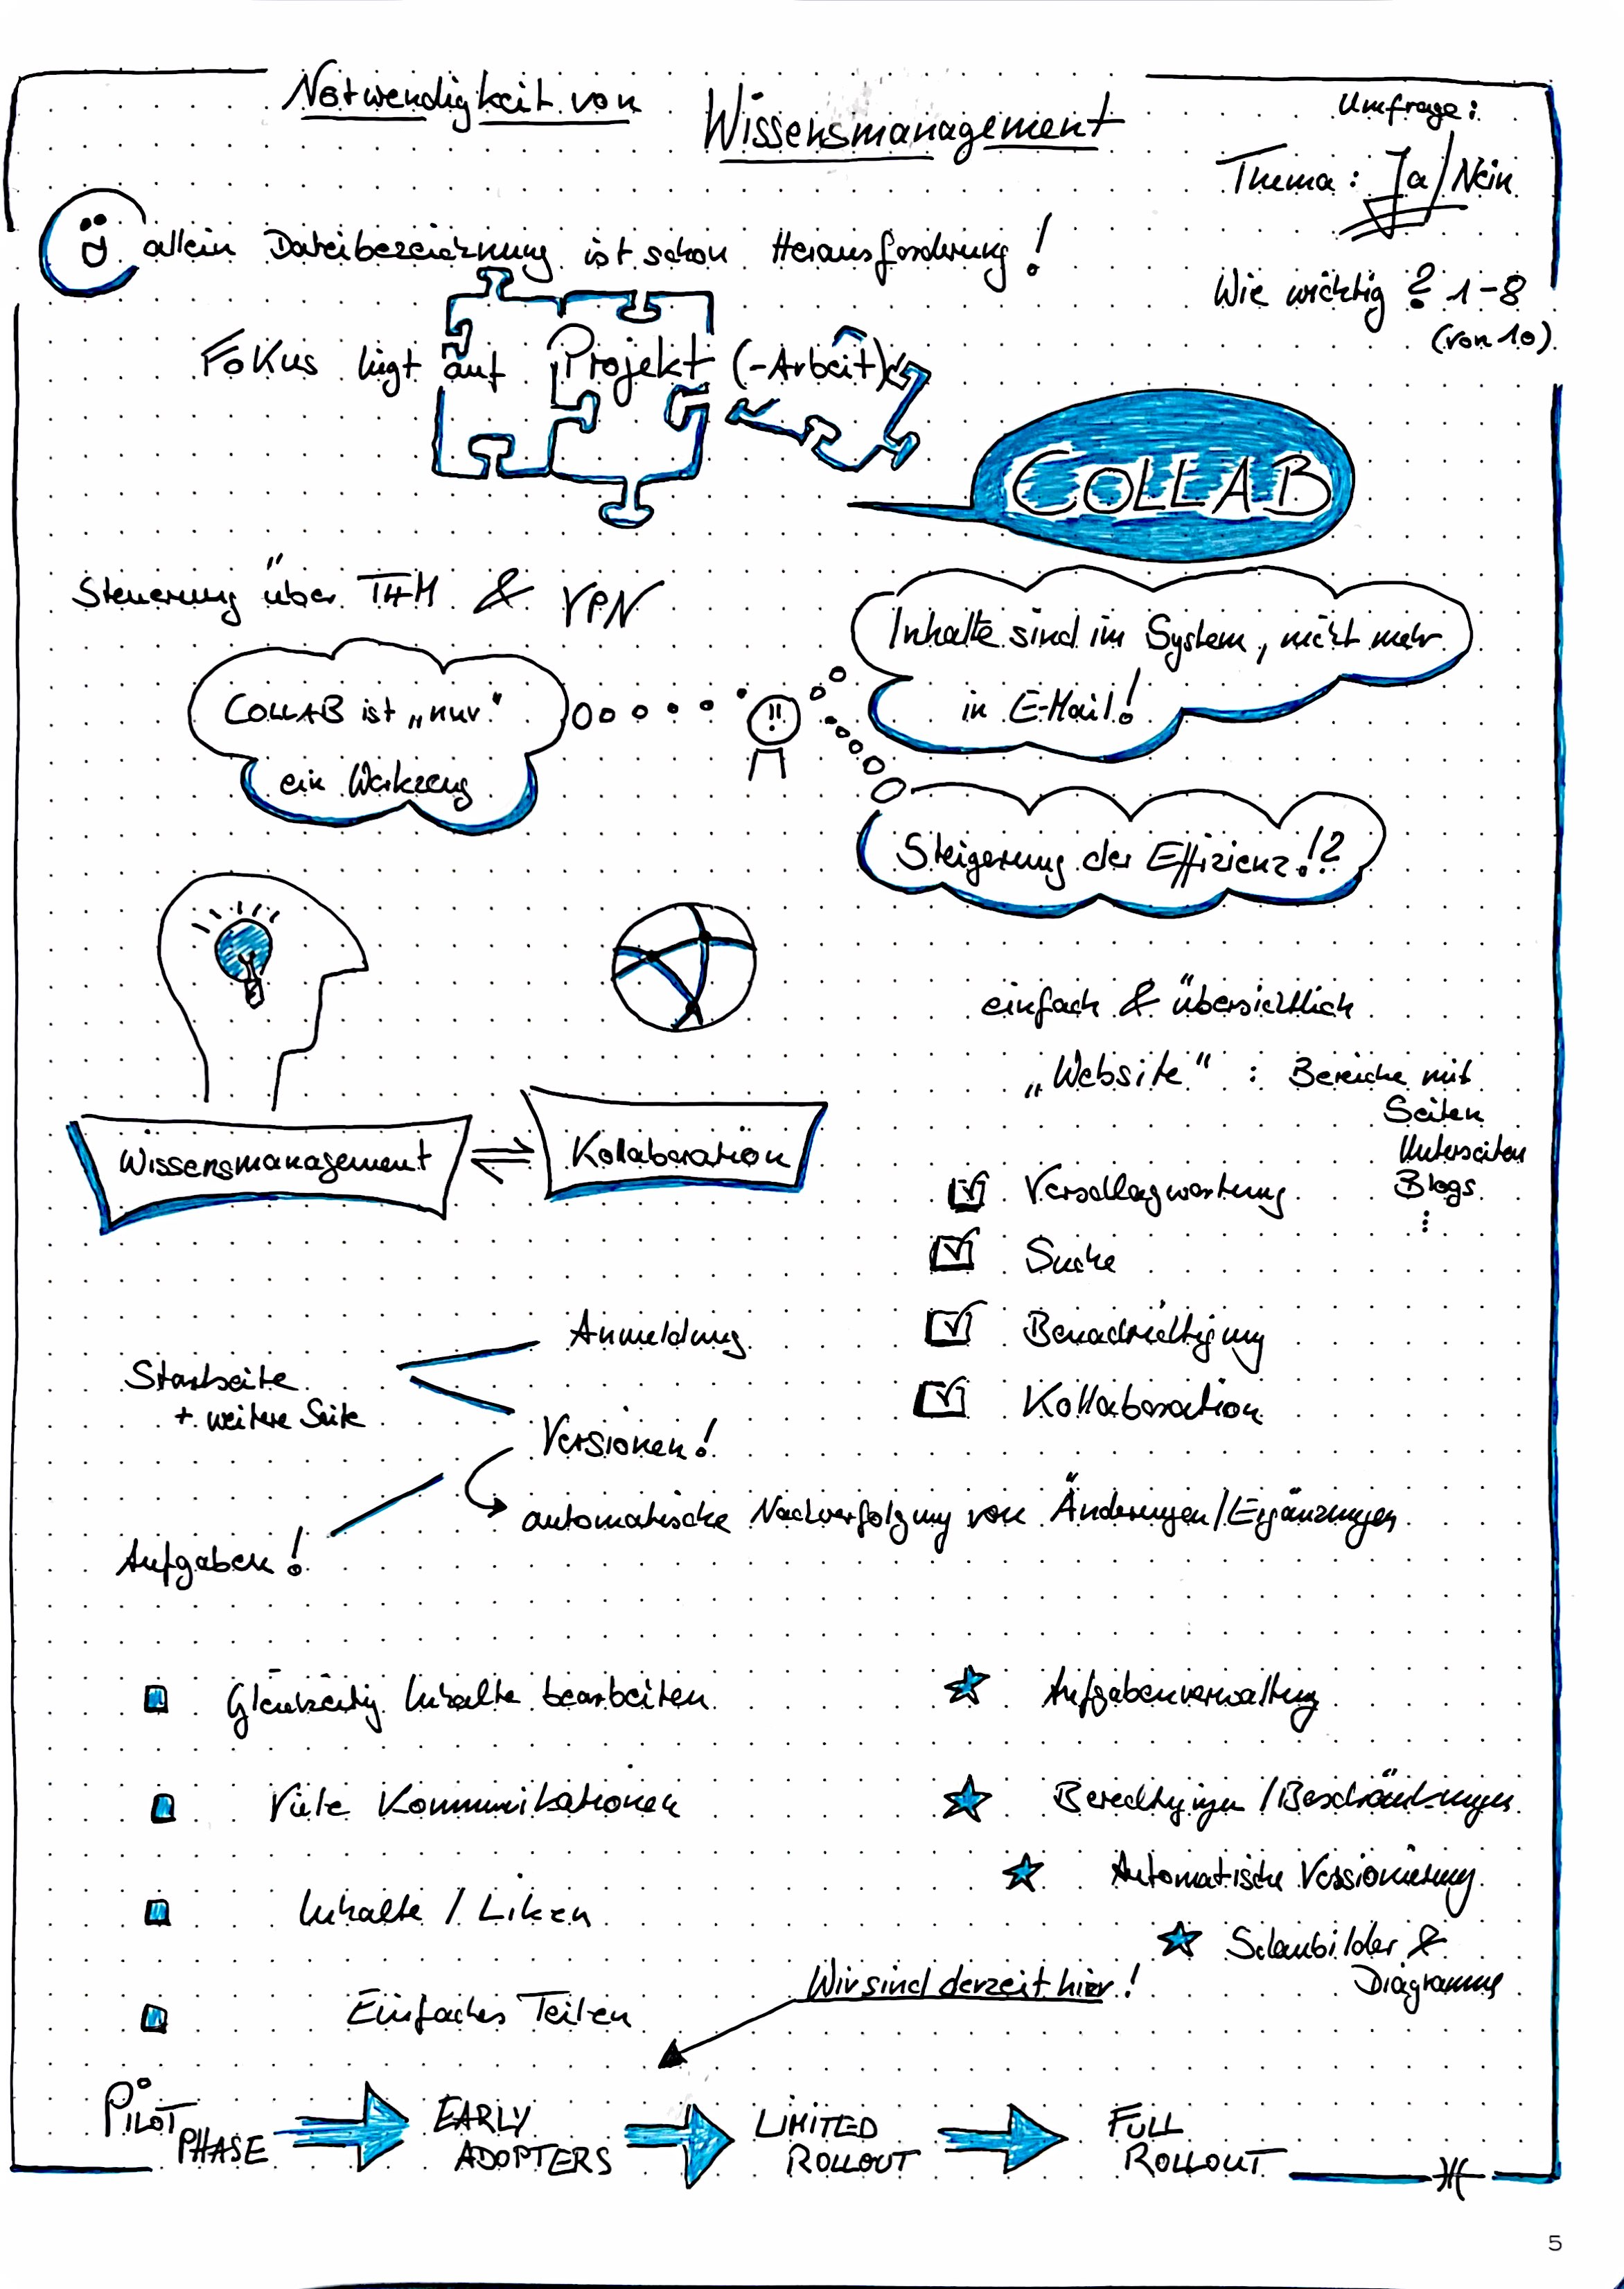 Notwendigkeit von
Wissensmanagement
Umfrage:
Thema: Ja/Nein
allein Dateibezeichnung ist schon Herausforderung!
Wie wichtig? 1-8
(von 10)
Fokus liegt auf Projekt (-Arbeit)
COLLAB
Steuerung über T4M & VPN
Inhalte sind im System, nicht mehr
in E-Mail!
COLLAB ist „nur"
ein Werkzeug
!!
Steigerung der Effizienz!?
einfach & übersichtlich
„Website" : Bereiche mit
Seiten
Unterseiten
Blogs
⋮
Wissensmanagement
Kollaboration
Verschlagwortung
Suche
Benachrichtigung
Kollaboration
Anmeldung
Startseite
+ weitere Seite
Versionen!
automatische Nachverfolgung von Änderungen/Ergänzungen
Aufgaben!
Gleichzeitig Inhalte bearbeiten
Viele Kommunikationen
Inhalte / Liken
Einfaches Teilen
Aufgabenverwaltung
Berechtigungen / Beschränkungen
Automatische Versionierung
Schaubilder &
Diagramme
Wir sind derzeit hier!
PILOT
PHASE
EARLY
ADOPTERS
LIMITED
ROLLOUT
FULL
ROLLOUT
5